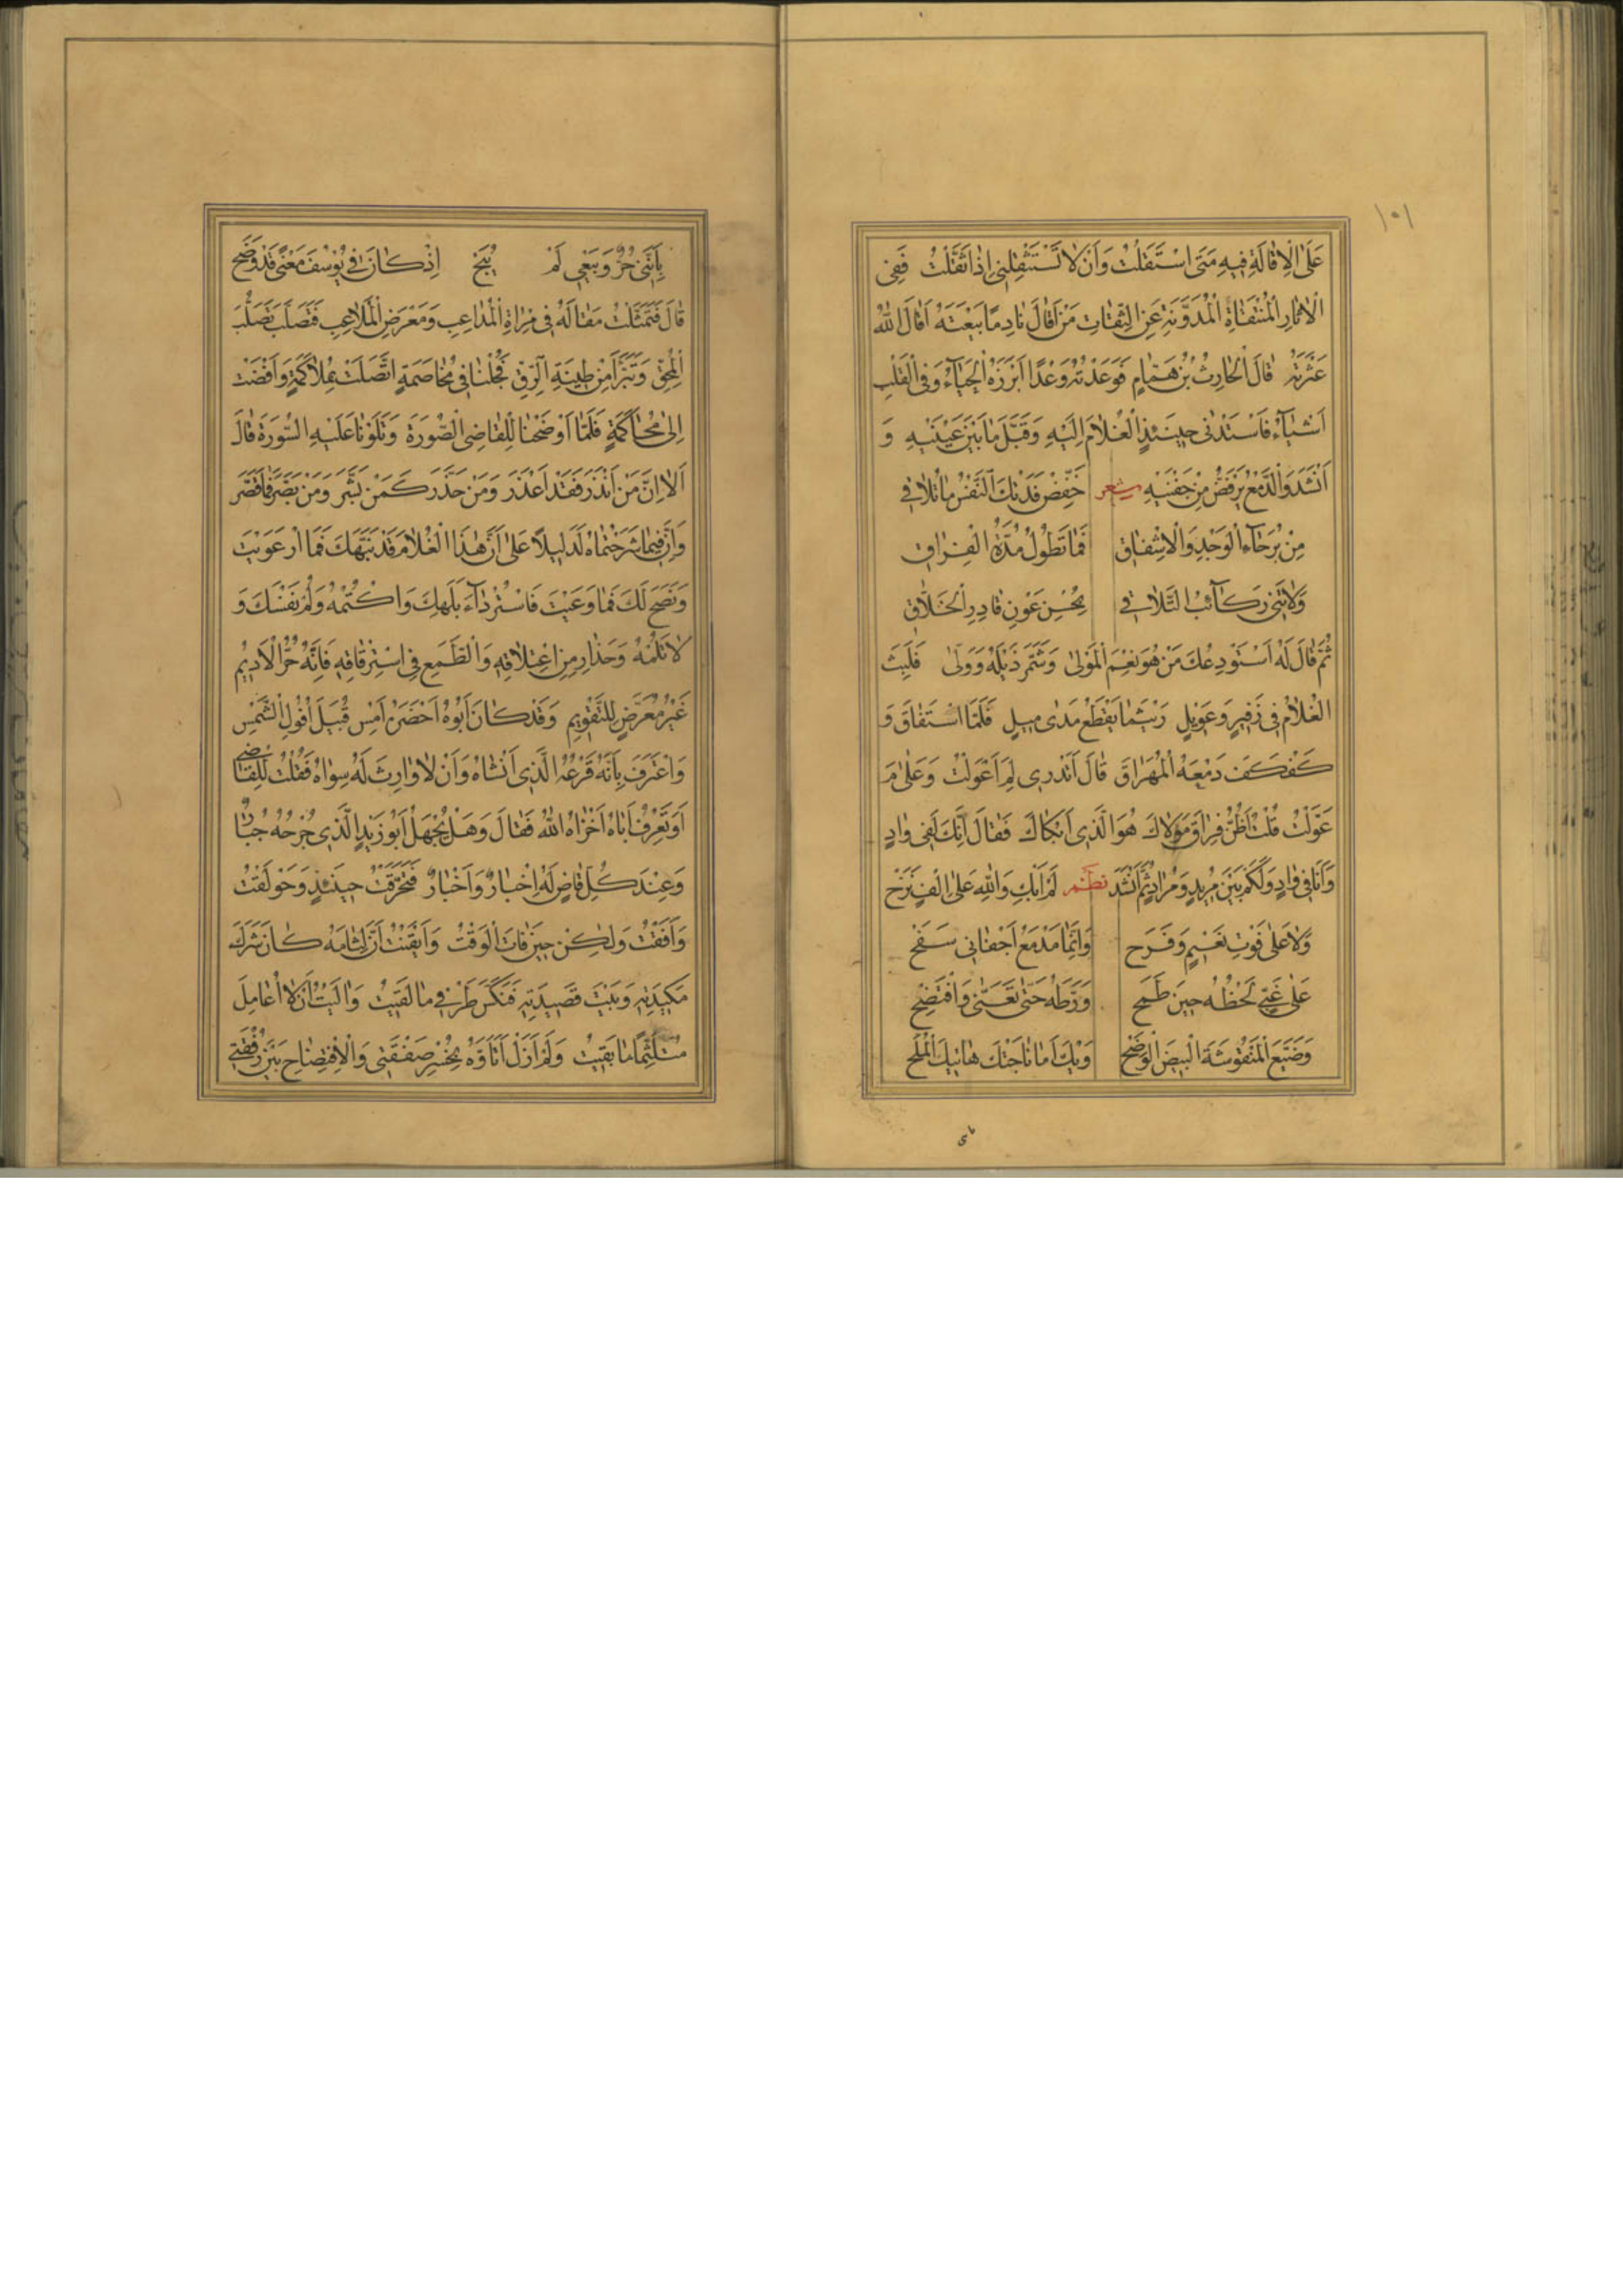 ١٠١
عَلَى الْاِقَالَةِ فِيهِ مَتَى اسْتَقَلْتُ وَاَنْ لَا تَسْتَثْقِلَنِي اِذَا ثَقَّلْتُ فَفِي
الْاٰثَارِ الْمُنْتَقَاةِ الْمُدَوَّنَةِ عَنِ الثِّقَاتِ مَنْ اَقَالَ نَادِمًا بَيْعَتَهُ اَقَالَ اللّٰهُ
عَثْرَتَهُ قَالَ الْحَارِثُ بْنُ هَمَّامٍ فَوَعَدْتُهُ وَعْدًا اَبْرَزَهُ الْحَيَاءُ وَفِي الْقَلْبِ
اَشْيَآءُ فَاسْتَدْنَى حِينَئِذٍ الْغُلَامَ اِلَيْهِ وَقَبَّلَ مَا بَيْنَ عَيْنَيْهِ وَ
اَنْشَدَ وَالدَّمْعُ يَرْفَضُّ مِنْ جَفْنَيْهِ شعر خَفِّضْ فَدَتْكَ النَّفْسُ مَا تُلَاقِي
مِنْ بُرَحَآءِ الْوَجْدِ وَالْاِشْفَاقِ فَمَا تَطُولُ مُدَّةُ الْفِرَاقِ
وَلَا تَنِي رَكَآئِبُ التَّلَاقِي بِحُسْنِ عَوْنِ قَادِرِ الْخَلَّاقِ
ثُمَّ قَالَ لَهُ اَسْتَوْدِعُكَ مَنْ هُوَ نِعْمَ الْمَوْلٰى وَشَمَّرَ ذَيْلَهُ وَوَلّٰى فَلَبِثَ
الْغُلَامُ فِي زَفِيرٍ وَعَوِيلٍ رَيْثَمَا يَقْطَعُ مَدٰى مِيلٍ فَلَمَّا اسْتَفَاقَ وَ
كَفْكَفَ دَمْعَهُ الْمُهَرَاقَ قَالَ اَتَدْرِي لِمَ اَعْوَلْتُ وَعَلٰى مَ
عَوَّلْتُ قُلْتُ اَظُنُّ فِرَاقَ مَوْلَاكَ هُوَ الَّذِي اَبْكَاكَ فَقَالَ اِنَّكَ لَفِي وَادٍ
وَاَنَا فِي وَادٍ وَلَكَمْ بَيْنَ مُرِيدٍ وَمُرَادٍ ثُمَّ اَنْشَدَ نظم لَمْ اَبْكِ وَاللّٰهِ عَلٰى اِلْفٍ نَزَحْ
وَلَا عَلٰى فَوْتِ نَعِيمٍ وَفَرَحْ وَاِنَّمَا مَدْمَعُ اَجْفَانِي سَفَحْ
عَلٰى غَبِيٍّ لَحْظُهُ حِينَ طَمَحْ وَرَّطَهُ حَتّٰى تَعَنّٰى وَافْتَضَحْ
وَضَيَّعَ الْمَنْقُوشَةَ الْبِيضَ الْوَضَحْ وَيْكَ اَمَا نَاجَتْكَ هَاتِيكَ الْمُلَحْ
بِاَنَّنِي حُرٌّ وَبَيْعِي لَمْ يُبَحْ اِذْ كَانَ فِي يُوسُفَ مَعْنًى قَدْ وَضَحْ
قَالَ فَتَمَثَّلْتُ مَقَالَهُ فِي مِرْاٰةِ الْمُدَاعِبِ وَمَعْرِضِ الْمُلَاعِبِ فَتَصَلَّبَ تَصَلُّبَ
الْمُحِقِّ وَتَبَرَّاَ مِنْ طِينَةِ الرِّقِّ فَجُلْنَا فِي مُخَاصَمَةٍ اتَّصَلَتْ بِمُلَاكَمَةٍ وَاَفْضَتْ
اِلٰى مُحَاكَمَةٍ فَلَمَّا اَوْضَحْنَا لِلْقَاضِي الصُّورَةَ وَتَلَوْنَا عَلَيْهِ السُّورَةَ قَالَ
اَلَا اِنَّ مَنْ اَنْذَرَ فَقَدْ اَعْذَرَ وَمَنْ حَذَّرَ كَمَنْ بَشَّرَ وَمَنْ بَصَّرَ فَمَا قَصَّرَ
وَاِنَّ فِيمَا شَرَحْتُمَاهُ لَدَلِيلًا عَلٰى اَنَّ هٰذَا الْغُلَامَ قَدْ نَبَّهَكَ فَمَا ارْعَوَيْتَ
وَنَصَحَ لَكَ فَمَا وَعَيْتَ فَاسْتُرْ دَآءَ بَلَهِكَ وَاكْتُمْهُ وَلُمْ نَفْسَكَ وَ
لَا تَلُمْهُ وَحَذَارِ مِنِ اعْتِلَاقِهِ وَالطَّمَعِ فِي اسْتِرْقَاقِهِ فَاِنَّهُ حُرُّ الْاَدِيمِ
غَيْرُ مُعَرَّضٍ لِلتَّقْوِيمِ وَقَدْ كَانَ اَبُوهُ اَحْضَرَهُ اَمْسِ قُبَيْلَ اُفُولِ الشَّمْسِ
وَاعْتَرَفَ بِاَنَّهُ فَرْعُهُ الَّذِي اَنْشَاَهُ وَاَنْ لَا وَارِثَ لَهُ سِوَاهُ فَقُلْتُ لِلْقَاضِي
اَوَتَعْرِفُ اَبَاهُ اَخْزَاهُ اللّٰهُ فَقَالَ وَهَلْ يُجْهَلُ اَبُو زَيْدٍ الَّذِي جُرْحُهُ جُبَارٌ
وَعِنْدَ كُلِّ قَاضٍ لَهُ اِخْبَارٌ وَاَخْبَارٌ فَتَحَرَّقْتُ حِينَئِذٍ وَحَوْلَقْتُ
وَاَفَقْتُ وَلٰكِنْ حِينَ فَاتَ الْوَقْتُ وَاَيْقَنْتُ اَنَّ لِثَامَهُ كَانَ شَرَكَ
مَكِيدَتِهِ وَبَيْتَ قَصِيدَتِهِ فَنَكَّسَ طَرْفِي مَا لَقِيتُ وَاٰلَيْتُ اَنْ لَا اُعَامِلَ
مُتَلَثِّمًا مَا بَقِيتُ وَلَمْ اَزَلْ اَتَاَوَّهُ لِخُسْرِ صَفْقَتِي وَالْاِفْتِضَاحِ بَيْنَ رُفْقَتِي